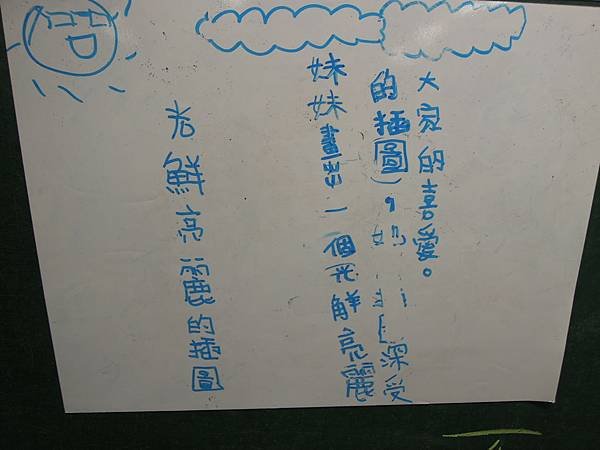 光鮮亮麗的插圖
妹妹畫出一個光鮮亮麗
的插圖，深受
大家的喜愛。